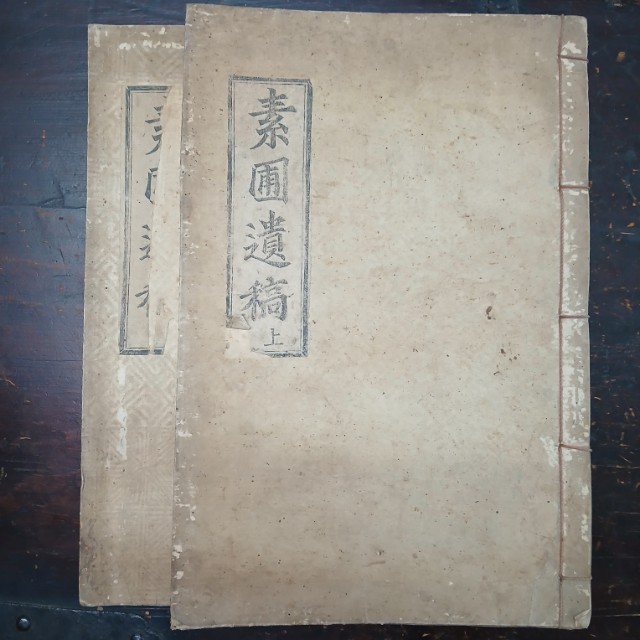 素圃遺稿 上
素圃遺稿